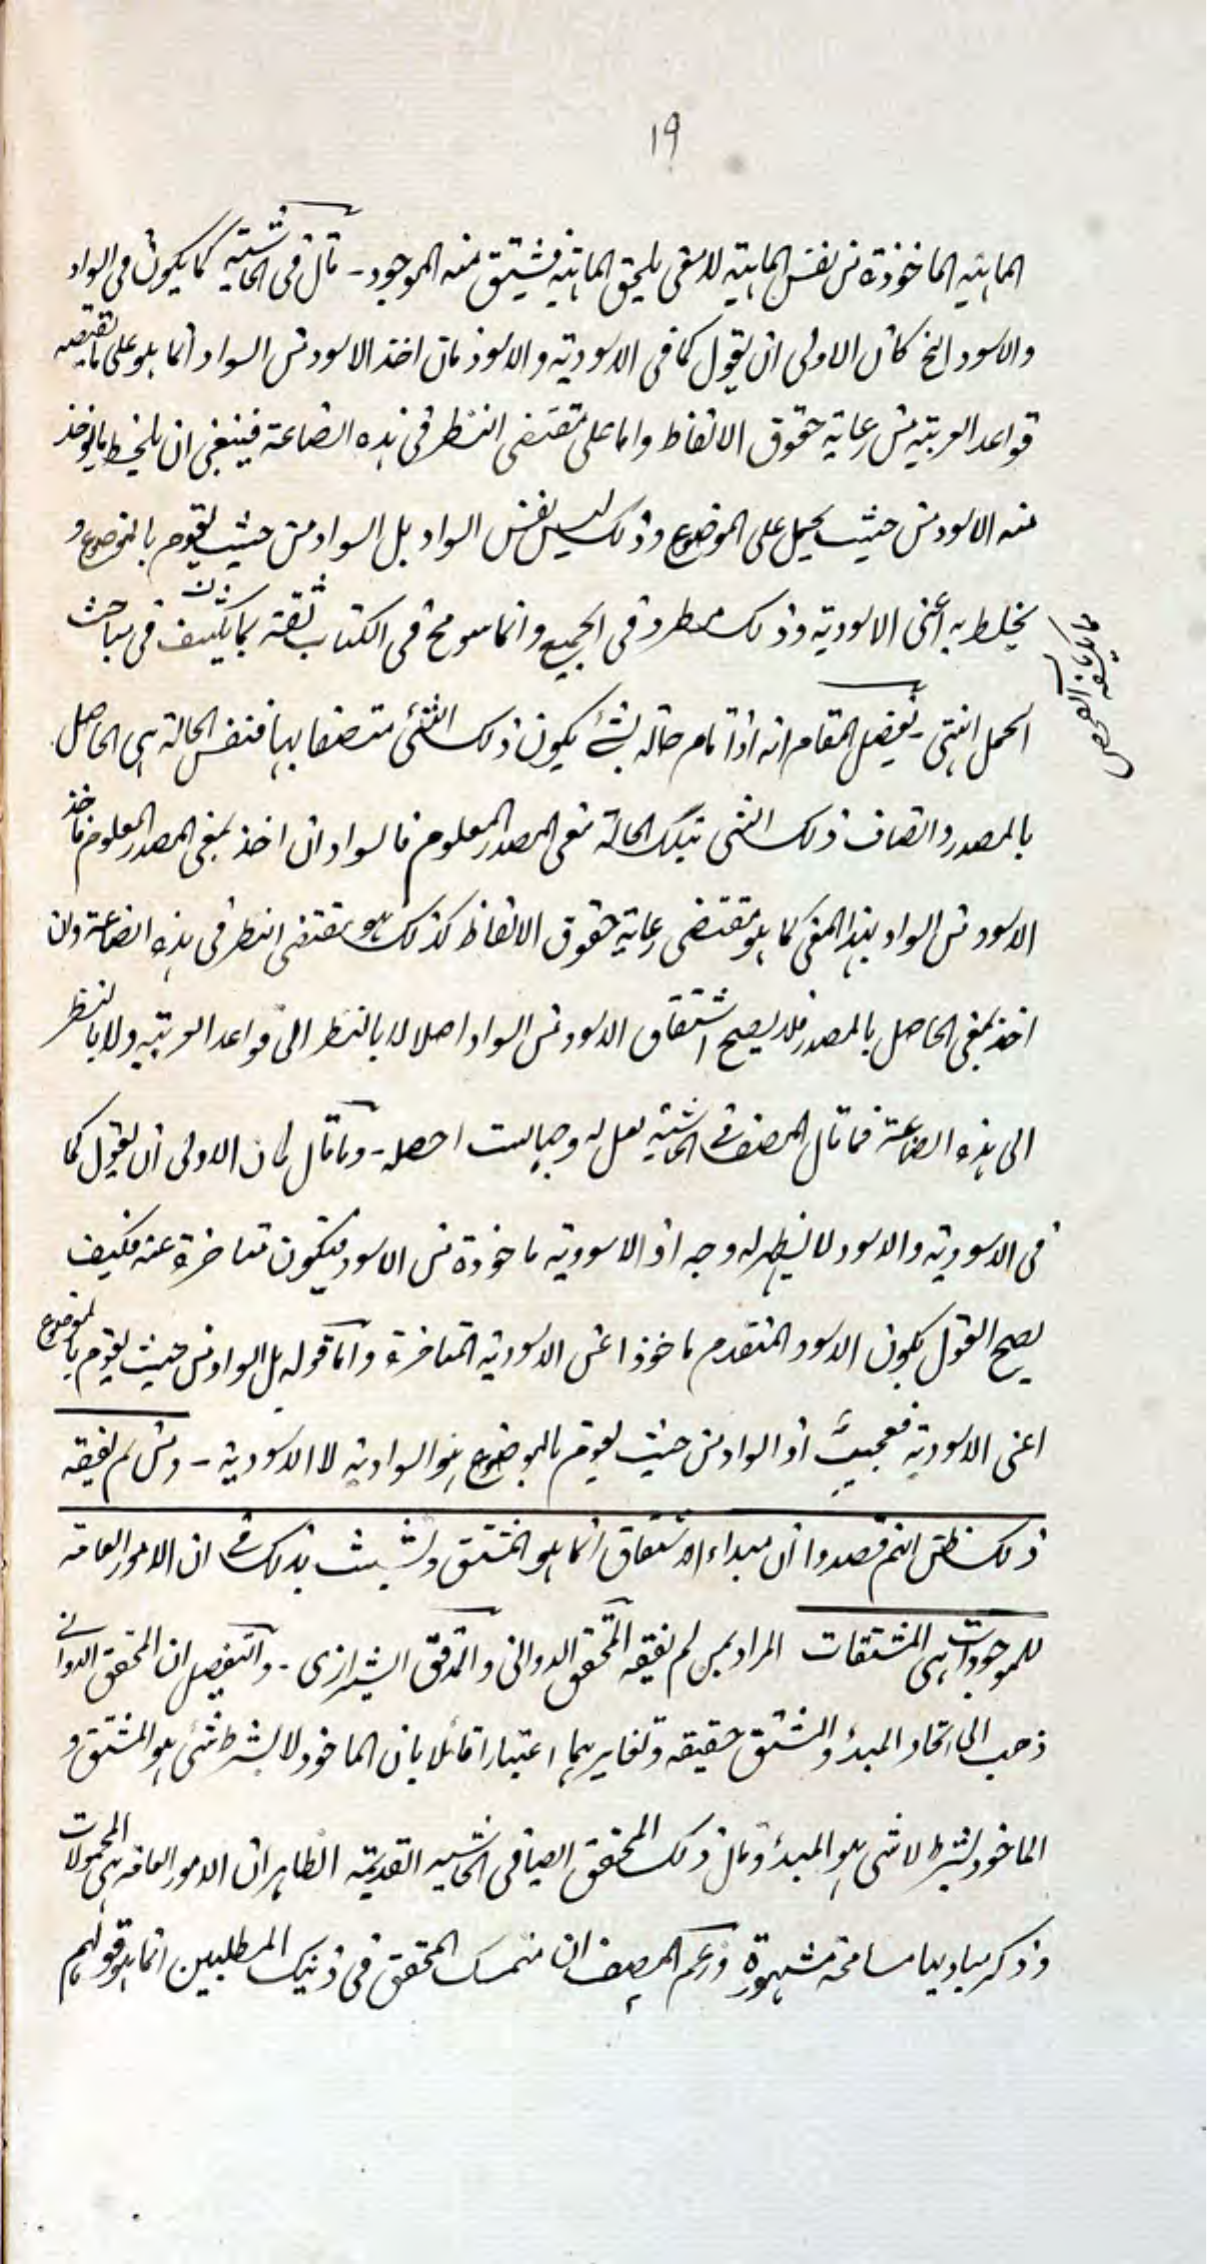 ١٩
الماهية الماخوذة من نفس الماهية لا معنى يلحق الماهية فيشتق منه الموجود - قال فى الحاشية كما يكون فى السواد
والاسود الخ كان الاولى ان يقول كما فى الاسودية والاسود فان اخذ الاسود من السواد انما هو على ما يقتضيه
قواعد العربية من رعاية حقوق الالفاظ واما على مقتضى النظر فى هذه الصناعة فينبغى ان يلحظ ما يوخذ
منه الاسود من حيث يحمل على الموضوع وذلك ليس نفس السواد بل السواد من حيث يقوم بالموضوع و
يخلط به اعنى الاسودية وذلك مطرد فى الجميع وانما سومح فى الكتاب ثقة بما يكشف فى مباحث
الحمل انتهى - تفصيل المقام انه اذا قام حالة بشئ يكون ذلك الشئ متصفا بها فنفس الحالة هى الحاصل
بالمصدر واتصاف ذلك الشئ بتلك الحالة معنى المصدر المعلوم فالسواد ان اخذ بمعنى المصدر المعلوم فاخذ
الاسود من السواد بهذا المعنى كما هو مقتضى رعاية حقوق الالفاظ كذلك هو مقتضى النظر فى هذه الصناعة وان
اخذ بمعنى الحاصل بالمصدر فلا يصح اشتقاق الاسود من السواد اصلا لا بالنظر الى قواعد العربية ولا بالنظر
الى هذه الصناعة فما قال المصنف فى الحاشية لعل له وجها لست احصله - وما قال كان الاولى ان يقول كما
فى الاسودية والاسود لا يظهر له وجه اذ الاسودية ماخوذة من الاسود فيكون متاخرة عنه فكيف
يصح القول بكون الاسود المتقدم ماخوذا عن الاسودية المتاخرة واما قوله بل السواد من حيث يقوم بالموضوع
اعنى الاسودية فعجيب اذ السواد من حيث يقوم بالموضوع هو السوادية لا الاسودية - ومن لم يفقه
ذلك ظن انهم قصدوا ان مبداء الاشتقاق انما هو المشتق وتشبث بذلك فى ان الامور العامة
للموجودات هى المشتقات المراد بمن لم يفقه المحقق الدوانى والمدقق الشيرازى - والتفصيل ان المحقق الدوانى
ذهب الى اتحاد المبدء والمشتق حقيقة وتغايرهما اعتبارا قائلا بان الماخوذ لا بشرط شئ هو المشتق و
الماخوذ بشرط لا شى هو المبدء وقال ذلك المحقق ايضا فى الحاشية القديمة الظاهر ان الامور العامة هى المحمولات
وذكر مباديها مسامحة مشهورة وزعم المصنف ان متمسك المحقق فى ذينك المطلبين انما هو قولهم